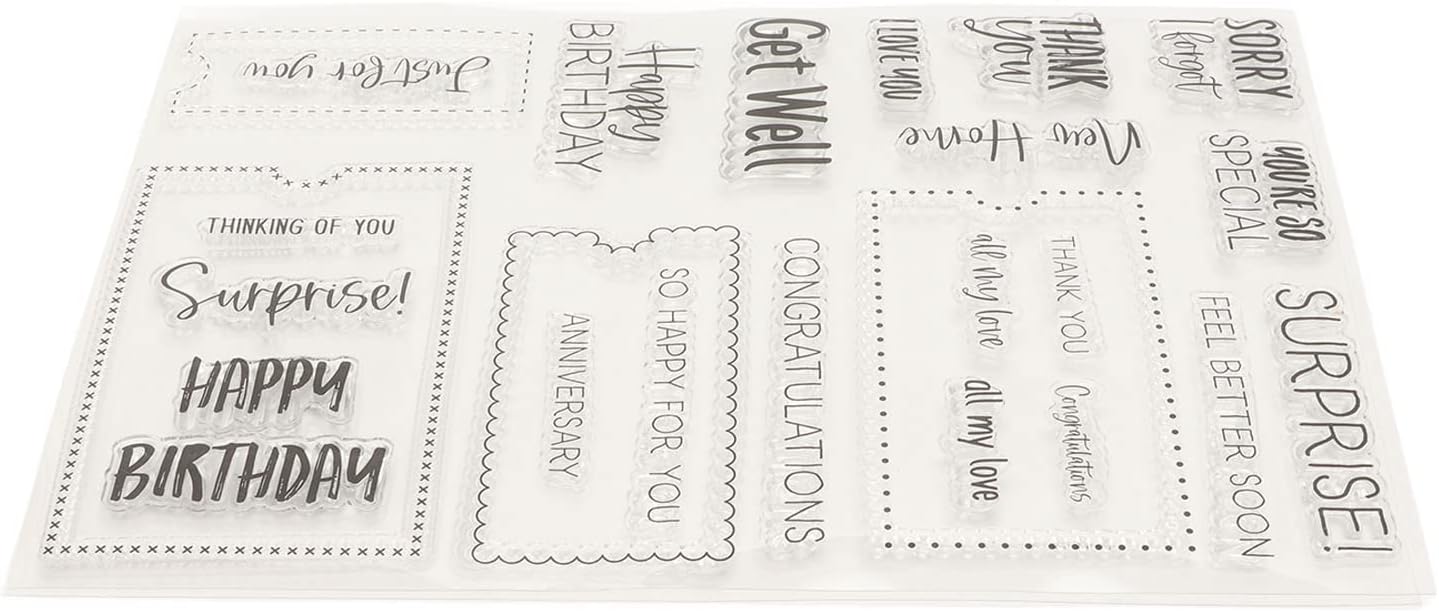 Just for you
Happy
BIRTHDAY
Get Well
I LOVE YOU
THANK
you
SORRY
I forgot
New Home
YOU'RE SO
SPECIAL
THINKING OF YOU
Surprise!
HAPPY
BIRTHDAY
SO HAPPY FOR YOU
ANNIVERSARY
CONGRATULATIONS
THANK YOU
all my love
Congratulations
all my love
SURPRISE!
FEEL BETTER SOON